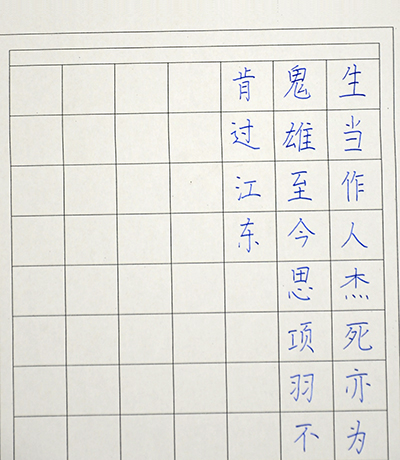 生当作人杰死亦为
鬼雄至今思项羽不
肯过江东